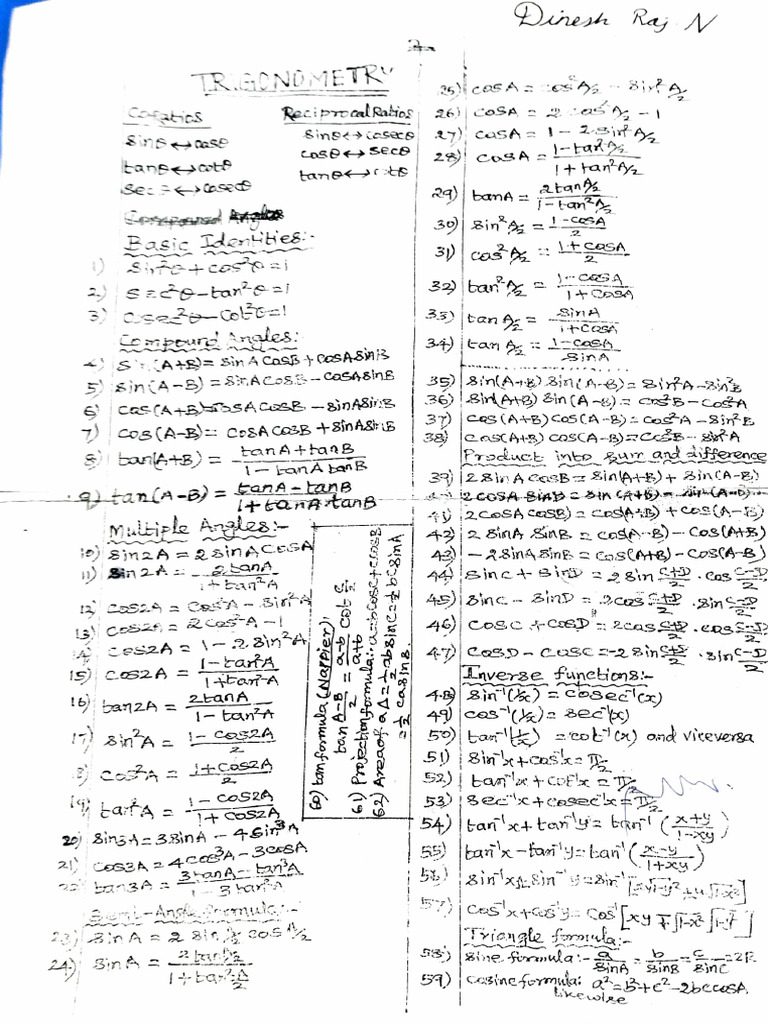 Dinesh Raj N
TRIGONOMETRY
Coratios
sinθ ↔ cosθ
tanθ ↔ cotθ
secθ ↔ cosecθ
Reciprocal Ratios
sinθ ↔ cosecθ
cosθ ↔ secθ
tanθ ↔ cotθ
Compound Angles
Basic Identities:-
1) sin²θ + cos²θ = 1
2) sec²θ - tan²θ = 1
3) cosec²θ - cot²θ = 1
Compound Angles:
4) sin(A+B) = sinA cosB + cosA sinB
5) sin(A-B) = sinA cosB - cosA sinB
6) cos(A+B) = cosA cosB - sinA sinB
7) cos(A-B) = cosA cosB + sinA sinB
8) tan(A+B) = (tanA + tanB)/(1 - tanA tanB)
9) tan(A-B) = (tanA - tanB)/(1 + tanA tanB)
Multiple Angles:-
10) sin2A = 2 sinA cosA
11) sin2A = 2tanA/(1 + tan²A)
12) cos2A = cos²A - sin²A
13) cos2A = 2cos²A - 1
14) cos2A = 1 - 2sin²A
15) cos2A = (1 - tan²A)/(1 + tan²A)
16) tan2A = 2tanA/(1 - tan²A)
17) sin²A = (1 - cos2A)/2
18) cos²A = (1 + cos2A)/2
19) tan²A = (1 - cos2A)/(1 + cos2A)
20) sin3A = 3sinA - 4sin³A
21) cos3A = 4cos³A - 3cosA
22) tan3A = (3tanA - tan³A)/(1 - 3tan²A)
Semi-Angle Formula:-
23) sinA = 2 sinA/2 cosA/2
24) sinA = 2tanA/2 / (1 + tan²A/2)
60) tan formula (Nappier):
tan (A-B)/2 = (a-b)/(a+b) cot C/2
61) Projection formula: a = bcosC + ccosB
62) Area of a Δ = ½ ab sinC = ½ bc sinA
= ½ ca sinB.
25) cosA = cos²A/2 - sin²A/2
26) cosA = 2cos²A/2 - 1
27) cosA = 1 - 2sin²A/2
28) cosA = (1 - tan²A/2)/(1 + tan²A/2)
29) tanA = 2tanA/2 / (1 - tan²A/2)
30) sin²A/2 = (1 - cosA)/2
31) cos²A/2 = (1 + cosA)/2
32) tan²A/2 = (1 - cosA)/(1 + cosA)
33) tanA/2 = sinA/(1 + cosA)
34) tanA/2 = (1 - cosA)/sinA
35) sin(A+B) sin(A-B) = sin²A - sin²B
36) sin(A+B) sin(A-B) = cos²B - cos²A
37) cos(A+B) cos(A-B) = cos²A - sin²B
38) cos(A+B) cos(A-B) = cos²B - sin²A
Product into sum and difference
39) 2sinA cosB = sin(A+B) + sin(A-B)
2cosA sinB = sin(A+B) - sin(A-B)
41) 2cosA cosB) = cos(A+B) + cos(A-B)
42) 2sinA sinB = cos(A-B) - cos(A+B)
43) -2sinA sinB = cos(A+B) - cos(A-B)
44) sinC + sinD = 2sin (C+D)/2 · cos (C-D)/2
45) sinC - sinD = 2cos (C+D)/2 · sin (C-D)/2
46) cosC + cosD = 2cos (C+D)/2 · cos (C-D)/2
47) cosD - cosC = -2sin (C+D)/2 · sin (C-D)/2
Inverse functions:-
48) sin⁻¹(1/x) = cosec⁻¹(x)
49) cos⁻¹(1/x) = sec⁻¹(x)
50) tan⁻¹(1/x) = cot⁻¹(x) and viceversa
51) sin⁻¹x + cos⁻¹x = π/2
52) tan⁻¹x + cot⁻¹x = π/2
53) sec⁻¹x + cosec⁻¹x = π/2
54) tan⁻¹x + tan⁻¹y = tan⁻¹((x+y)/(1-xy))
55) tan⁻¹x - tan⁻¹y = tan⁻¹((x-y)/(1+xy))
56) sin⁻¹x ± sin⁻¹y = sin⁻¹[x√1-y² ± y√1-x²]
57) cos⁻¹x ± cos⁻¹y = cos⁻¹[xy ∓ √1-x² √1-y²]
Triangle formula:-
58) sine formula:- a/sinA = b/sinB = c/sinC = 2R
59) cosine formula: a² = b² + c² - 2bc cosA
likewise